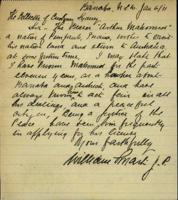 Banaba, N.S.W. Jan 6/11
The Collector of Customs Sydney
Sir - The Bearer "Arthur Mahomed"
a native of Punjab, India, wishes to visit
his native land and return to Australia
at some future time, I may state that
I have known Mahomed for the past
eleven years, as a hawker about
Banaba and district, and have
always found him act fair in all
his dealings, and a peaceful
citizen. Being a Justice of the
Peace have seen him frequently
in applying for his license
Yours faithfully
William Smart J.P.